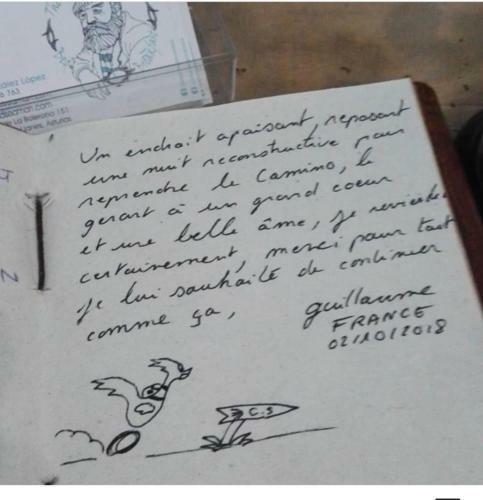 alez López
6 763
Un endroit apaisant, reposant
une nuit reconstructive pour
reprendre le Camino, le
gérant à un grand coeur
et une belle âme, je reviendrai
certainement, merci pour tout
je lui souhaite de continuer
comme ça,
guillaume
FRANCE
02/10/2018
C.S